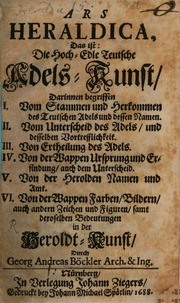 ARS
HERALDICA,
Das ist:
Die Hoch-Edle Teutsche
Adels-Kunst/
Darinnen begriffen
I. Vom Stammen und Herkommen
des Teutschen Adels und dessen Namen.
II. Vom Unterscheid des Adels/ und
desselben Vortreflichkeit.
III. Von Ertheilung des Adels.
IV. Von der Wappen Ursprung und Er-
findung/ auch dem Unterscheid.
V. Von der Herolden Namen und
Amt.
VI. Von der Wappen Farben/ Bildern/
auch andern Zeichen und Figuren/ samt
deroselben Bedeutungen
in der
Heroldt-Kunst/
Durch
Georg Andreas Böckler Arch. & Ing.
Nürnberg/
In Verlegung Johann Ziegers/
Gedruckt bey Johann Michael Spörlin/ 1688.